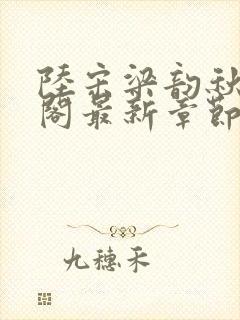 陸宗梁韵秋
閣最新章節
九穗禾